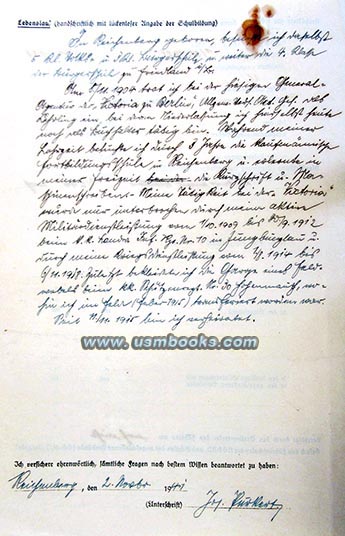 Lebenslauf (handschriftlich mit lückenloser Angabe der Schulbildung)
In Reichenberg geboren besuchte ich daselbst
5 Kl. Volks- u. 3 Kl. Bürgerschule u. weiter die 4. Klasse
der Bürgerschule zu Friedland
Am trat ich bei der hiesigen General
Agentie der "Victoria zu Berlin, Allgem. Vers. Akt. Ges. als
Lehrling ein, bei deren Niederlassung ich heute
noch als Buchhalter tätig bin. Während meiner
Lehrzeit besuchte ich durch 3 Jahre die Kaufmännische
Fortbildungsschule in Reichenberg u. erlernte in
meiner Freizeit die Kurzschrift u. Ma-
schinenschreiben. Meine Tätigkeit bei der "Victoria"
wurde nur unterbrochen durch meine aktive
Militärdienstleistung vom 1/10. 1909 bis 1912
beim k.k. Landw. Inf. Rgt. Nr. 10 in Jungbunzlau u.
durch meine Kriegsdienstleistung vom 1914 bis
1918. Zuletzt bekleidete ich die Charge eines Feld-
webels beim kk. wo-
hin ich im Jahre 1915 transferiert worden war.
Seit 1915 bin ich verheiratet.
www.usmbooks.com
Ich versichere ehrenwörtlich, sämtliche Fragen nach bestem Wissen beantwortet zu haben:
Reichenberg, den 2. Novbr. 19
(Unterschrift) Jos. Purkert